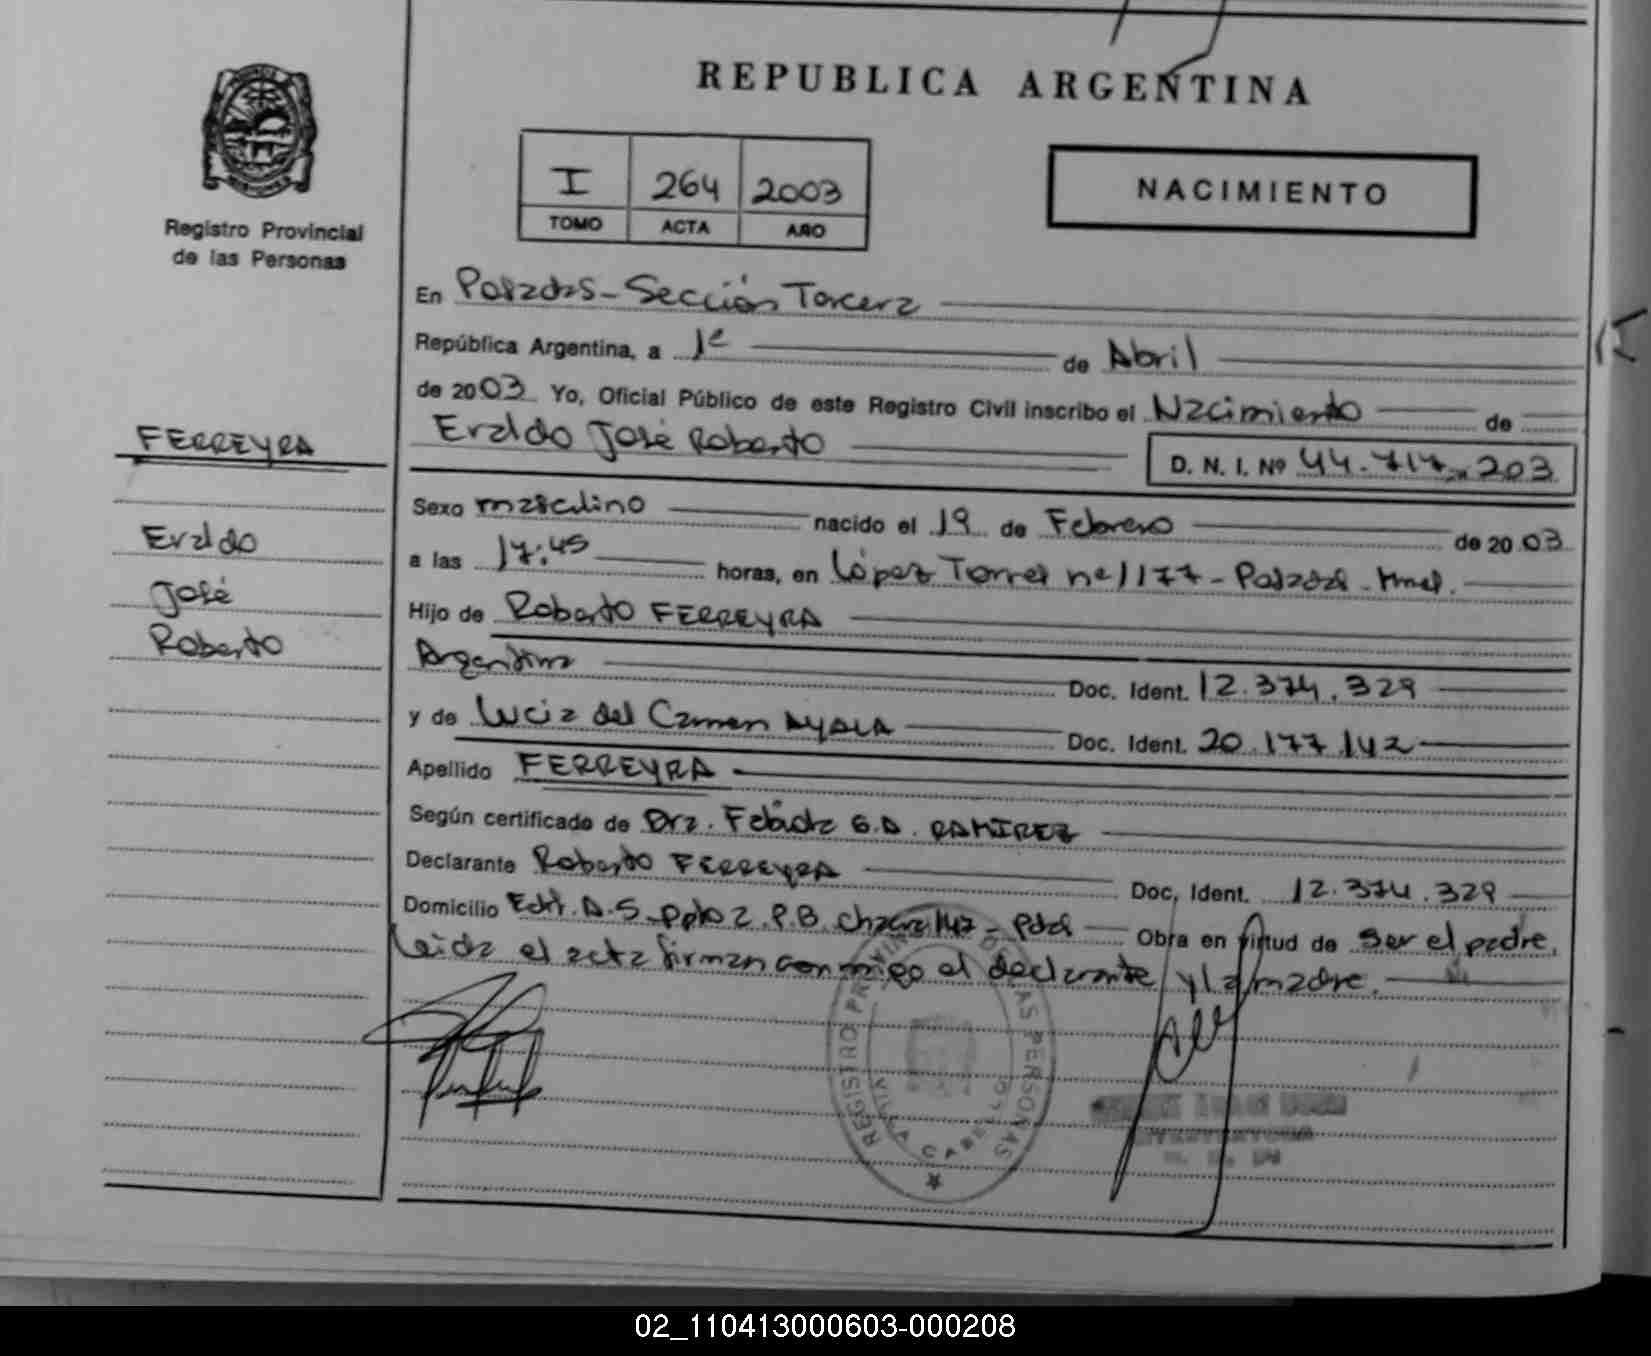 REPUBLICA ARGENTINA
I 264 2003
TOMO ACTA AÑO
NACIMIENTO
Registro Provincial
de las Personas
FERREYRA
Eraldo
José
Roberto
En Posadas - Sección Tercera
República Argentina, a 1º de Abril
de 2003 Yo, Oficial Público de este Registro Civil inscribo el Nacimiento de
Eraldo José Roberto
D. N. I. Nº 44.717.203
Sexo masculino nacido el 19 de Febrero de 2003
a las 17:45 horas, en López Torres nº 1177 - Posadas - Mnes.
Hijo de Roberto FERREYRA
Argentino Doc. Ident. 12.374.329
y de Lucia del Carmen AYALA Doc. Ident. 20.177.142
Apellido FERREYRA
Según certificado de Dra. G.A. RAMIREZ
Declarante Roberto FERREYRA Doc. Ident. 12.374.329
Domicilio Edif. A.5 - Dpto 2. P.B. Chacra - Pdas Obra en virtud de ser el padre.
Leida el acta firman conmigo el declarante y la madre.
REGISTRO PROVINCIAL DE LAS PERSONAS
VILLA CABELLO
02_110413000603-000208